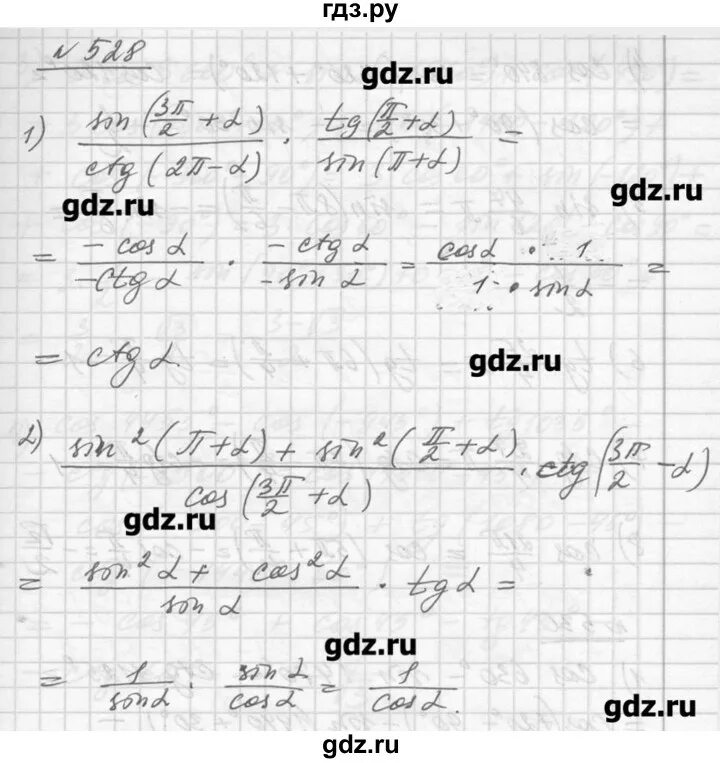 гдз.ру
№ 528
gdz.ru
1) sin(3π/2 + α) / ctg(2π − α) · tg(π/2 + α) / sin(π + α) =
gdz.ru
gdz.ru
= −cos α / −ctg α · −ctg α / −sin α = cos α · 1 / 1 · sin α =
= ctg α.
gdz.ru
2) sin²(π + α) + sin²(π/2 + α) / cos(3π/2 + α) · ctg(3π/2 − α)
gdz.ru
= sin²α + cos²α / sin α · tg α =
gdz.ru
= 1 / sin α · sin α / cos α = 1 / cos α.
gdz.ru
gdz.ru